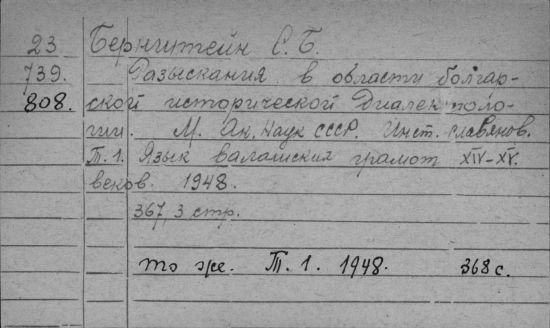 23 Бернштейн С.Б.
739. Разыскания в области болгар-
808. ской исторической диалектоло-
гии. М. Ак. Наук СССР. Инст. славянов.
Т. 1. Язык валашских грамот XIV-XV.
веков. 1948.
367, 3 стр.
то же. Т. 1. 1948. 368 с.